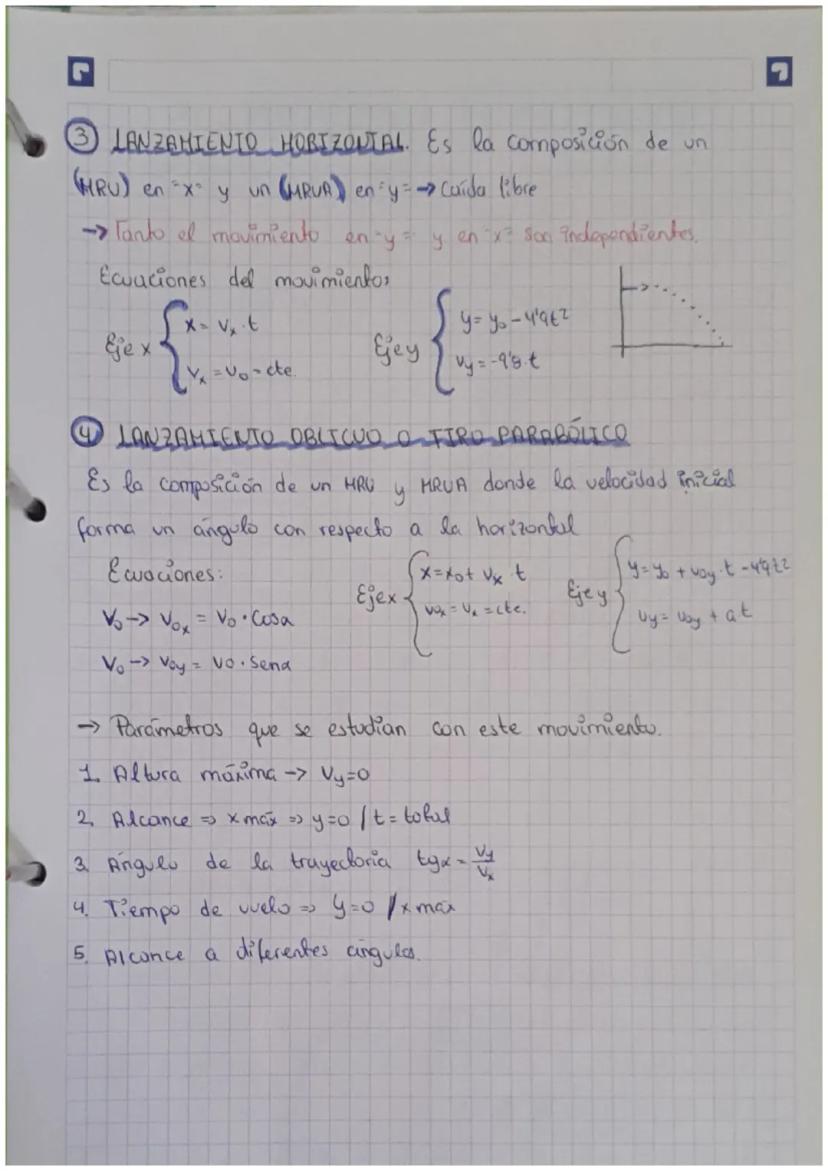 ③ LANZAMIENTO HORIZONTAL. Es la composición de un
(MRU) en "x" y un (MRUA) en "y" → Caída libre
→ Tanto el movimiento en "y" y en "x" son independientes.
Ecuaciones del movimiento:
Eje x { x = Vx·t
Vx = V0 = cte.
Eje y { y = y0 - 4'9t²
Vy = -9'8·t
④ LANZAMIENTO OBLICUO O TIRO PARABÓLICO
Es la composición de un MRU y MRUA donde la velocidad inicial
forma un ángulo con respecto a la horizontal
Ecuaciones:
V0 → V0x = V0·Cosα
V0 → V0y = V0·Senα
Eje x { x = x0 + Vx t
V0x = Vx = cte.
Eje y { y = y0 + V0y·t - 4'9t²
Vy = V0y + at
→ Parámetros que se estudian con este movimiento.
1. Altura máxima → Vy=0
2. Alcance ⇒ x máx ⇒ y=0 / t = total
3. Ángulo de la trayectoria tgα = Vy/Vx
4. Tiempo de vuelo ⇒ y=0 / x max
5. Alcance a diferentes ángulos.